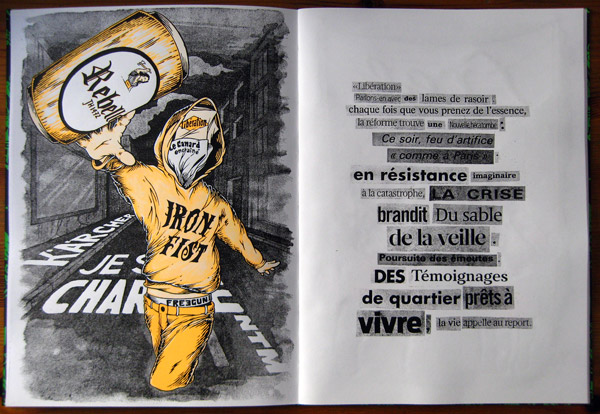 Rebel
Libération
Le Canard
enchaîné
IRON
FIST
KARCHER
JE S
CHAR
FREEGUN
NTM
«Libération»
des lames de rasoir.
chaque fois que vous prenez de l'essence,
la réforme trouve une Nouvelle hécatombe.
Ce soir, feu d'artifice
« comme à Paris »
en résistance imaginaire
à la catastrophe, LA CRISE
brandit Du sable
de la veille.
Poursuite des émeutes
DES Témoignages
de quartier prêts à
vivre, la vie appelle au report.